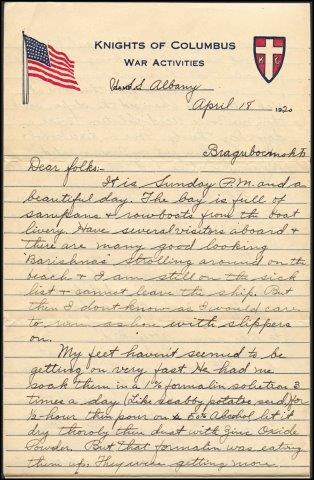 KNIGHTS OF COLUMBUS
WAR ACTIVITIES
K C
U.S.S. Albany
April 18 1920
Dear folks:-
It is Sunday P.M. and a
beautiful day. The bay is full of
sampans & rowboats from the boat
livery. Have several visitors aboard &
there are many good looking
"Barishnas" strolling around on the
beach & I am still on the sick
list & cannot leave the ship. But
then I dont know as I would care
to ashore with slippers
on.
My feet haven't seemed to be
getting on very fast. He had me
soak them in a 1% formalin solution 3
times a day (Like scabby potatoe seed) for
½-hour then pour on 50% Alcohol let it
dry thoroly then dust with Zinc Oxide
Powder. But that formalin was eating
them up. They were getting more